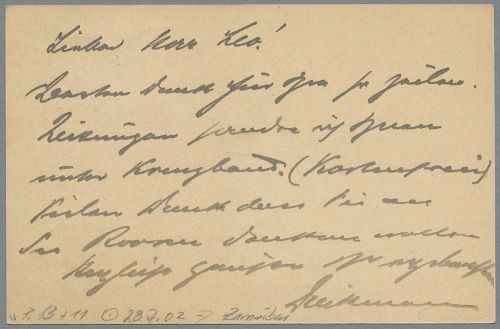 Lieber Herr Leo!
Besten Dank für Ihre frdl. Zeilen.
Zeitungen sende ich Ihnen
unter Kreuzband. (Kostenfrei)
Vielen Dank dass Sie an
die Rooren denken wollen
Herzlich grüßt Ihr ergebenster
Diekmann
28.7.02 → Zanzibar